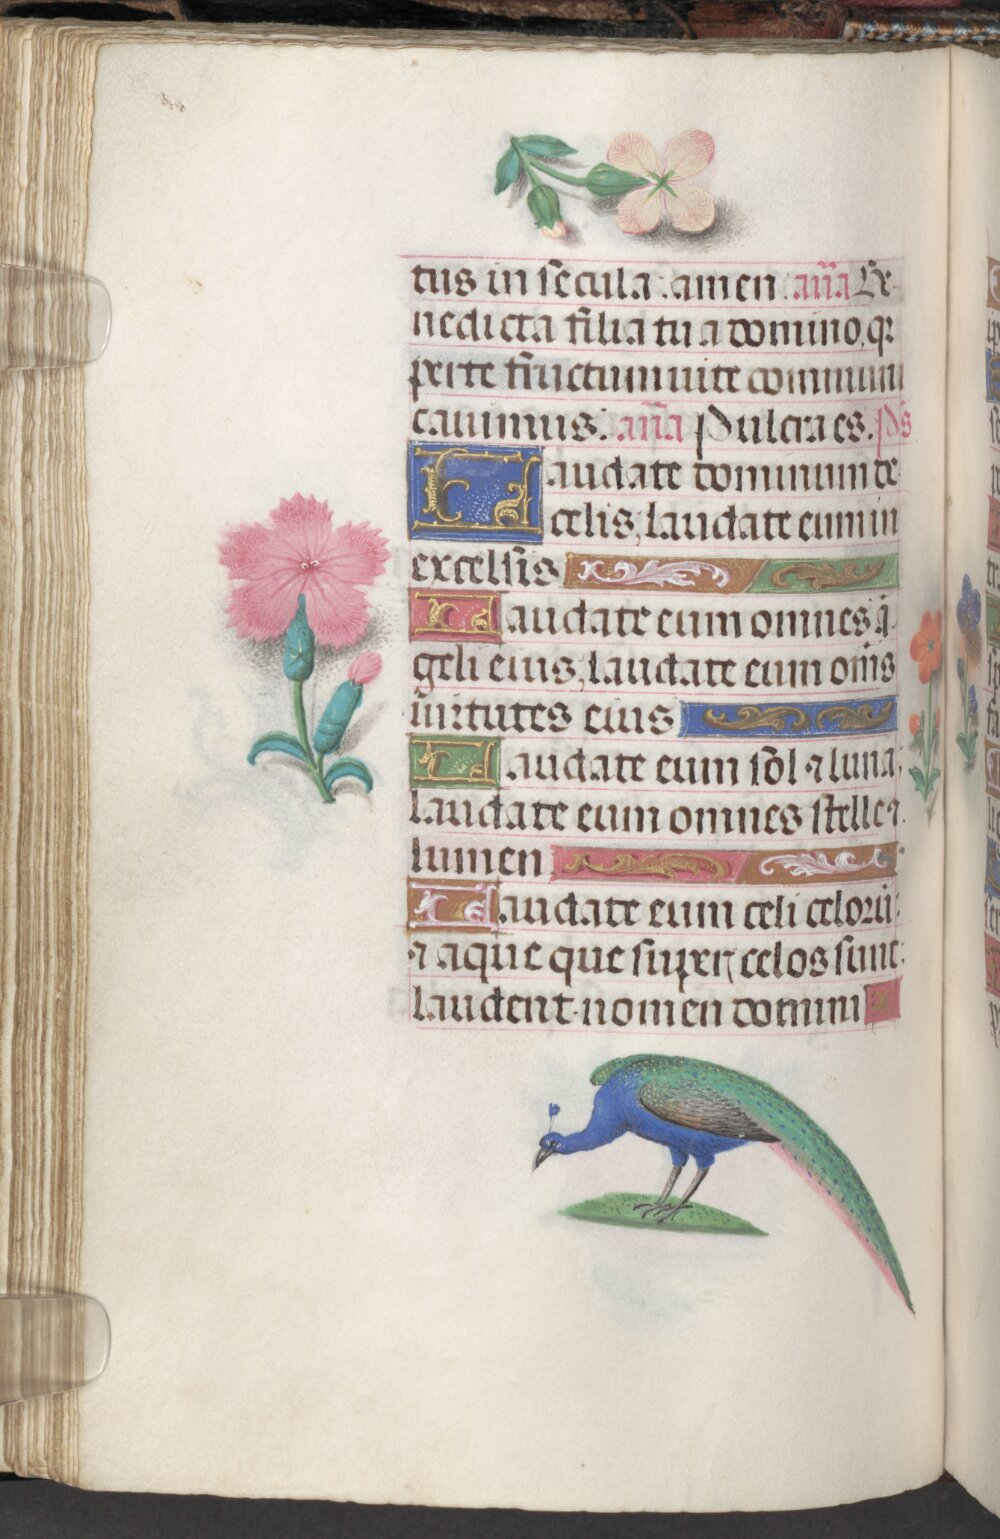 tus in secula : amen . añа Be-
nedicta filia tu a domino, q̃
per te fructum vite commum
cavimus . aña Pulcra es . p̃s
Laudate dominum de
celis, laudate eum in
excelsis
Laudate eum omnes ã
geli eius, laudate eum om̃s
virtutes eius
Laudate eum sol ⁊ luna,
laudate eum omnes stelle ⁊
lumen
Laudate eum celi celorũ
⁊ aque que super celos sunt
laudent nomen domini